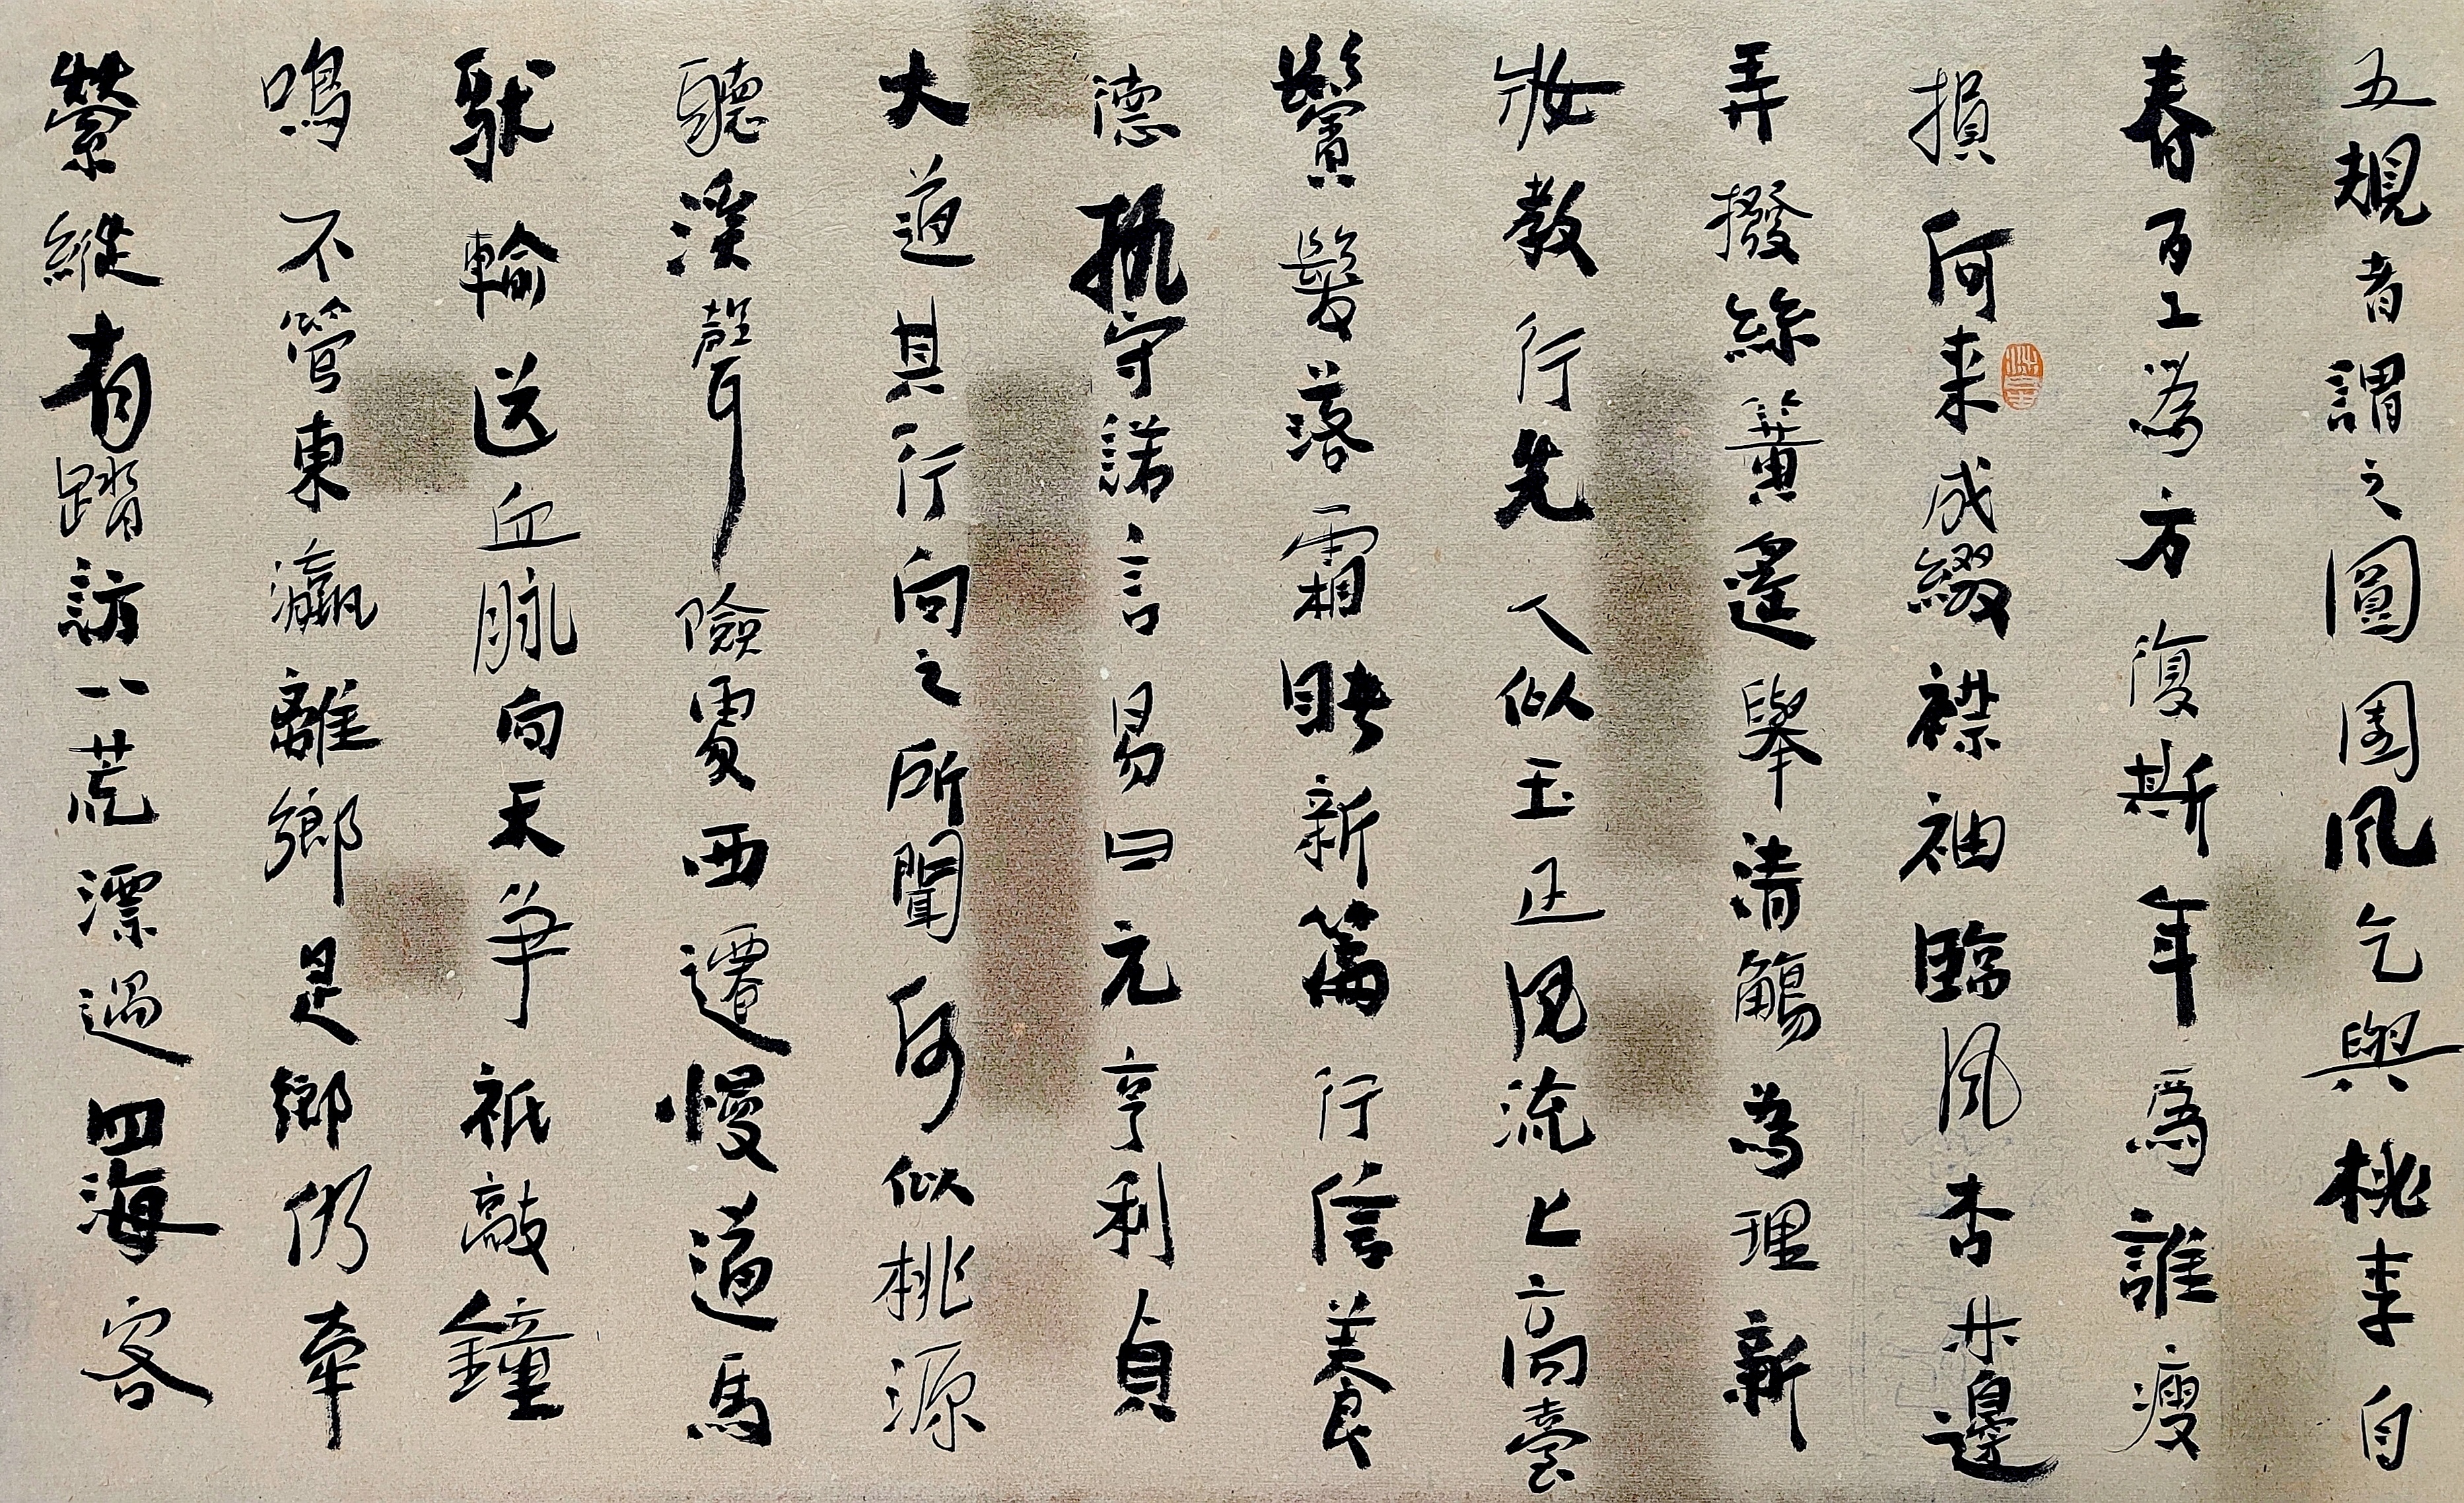 五規者謂之圓周風乞與桃李自
春百工為方復斯年爲誰瘦
損何来成綴襟袖臨風杏花邊
弄撥絲簧遙舉清觴為理新
妝教行先人似玉正思流上高臺
鬢髮落霜眸新篇行信養
德執守諾言易曰元亨利貞
大道其行向之所聞何似桃源
聽溪聲險處西遷慢道馬
馱輸送血脈向天爭祇敲鐘
鳴不管東瀛離鄉是鄉仍牽
縈縱有踏訪八荒漂過四海客